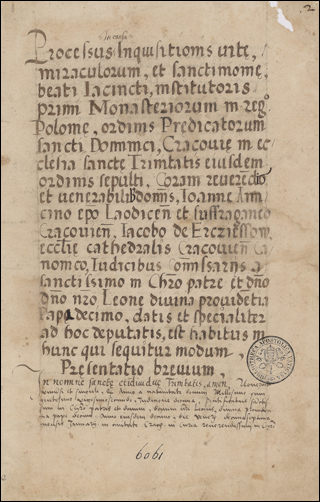 2
in causa
Processus Inquisitionis vite,
miraculorum, et sanctimonie,
beati Iacincti, institutoris
primi Monasteriorum in regº
Polonie, ordinis Predicatorum
sancti Dominici, Cracovię in ec
clesia sancte Trinitatis eiusdem
ordinis sepulti. Coram reverendis
et venerabili dominis, Ioanne Ami
cino epo Laodiceñ et suffraganeo
Cracovieñ, Iacobo de Erczikssow,
ecclie cathedralis Cracovieñ Ca
nonico, Iudicibus Comissariis a
sanctissimo in Chro patre et dño
dño nro Leone divina providetia
Papa decimo, datis et specialiter
ad hoc deputatis, est habitus in
hunc qui sequitur modum.
Presentatio brevium.
In nomine sancte et individue Trinitatis, amen.
6061